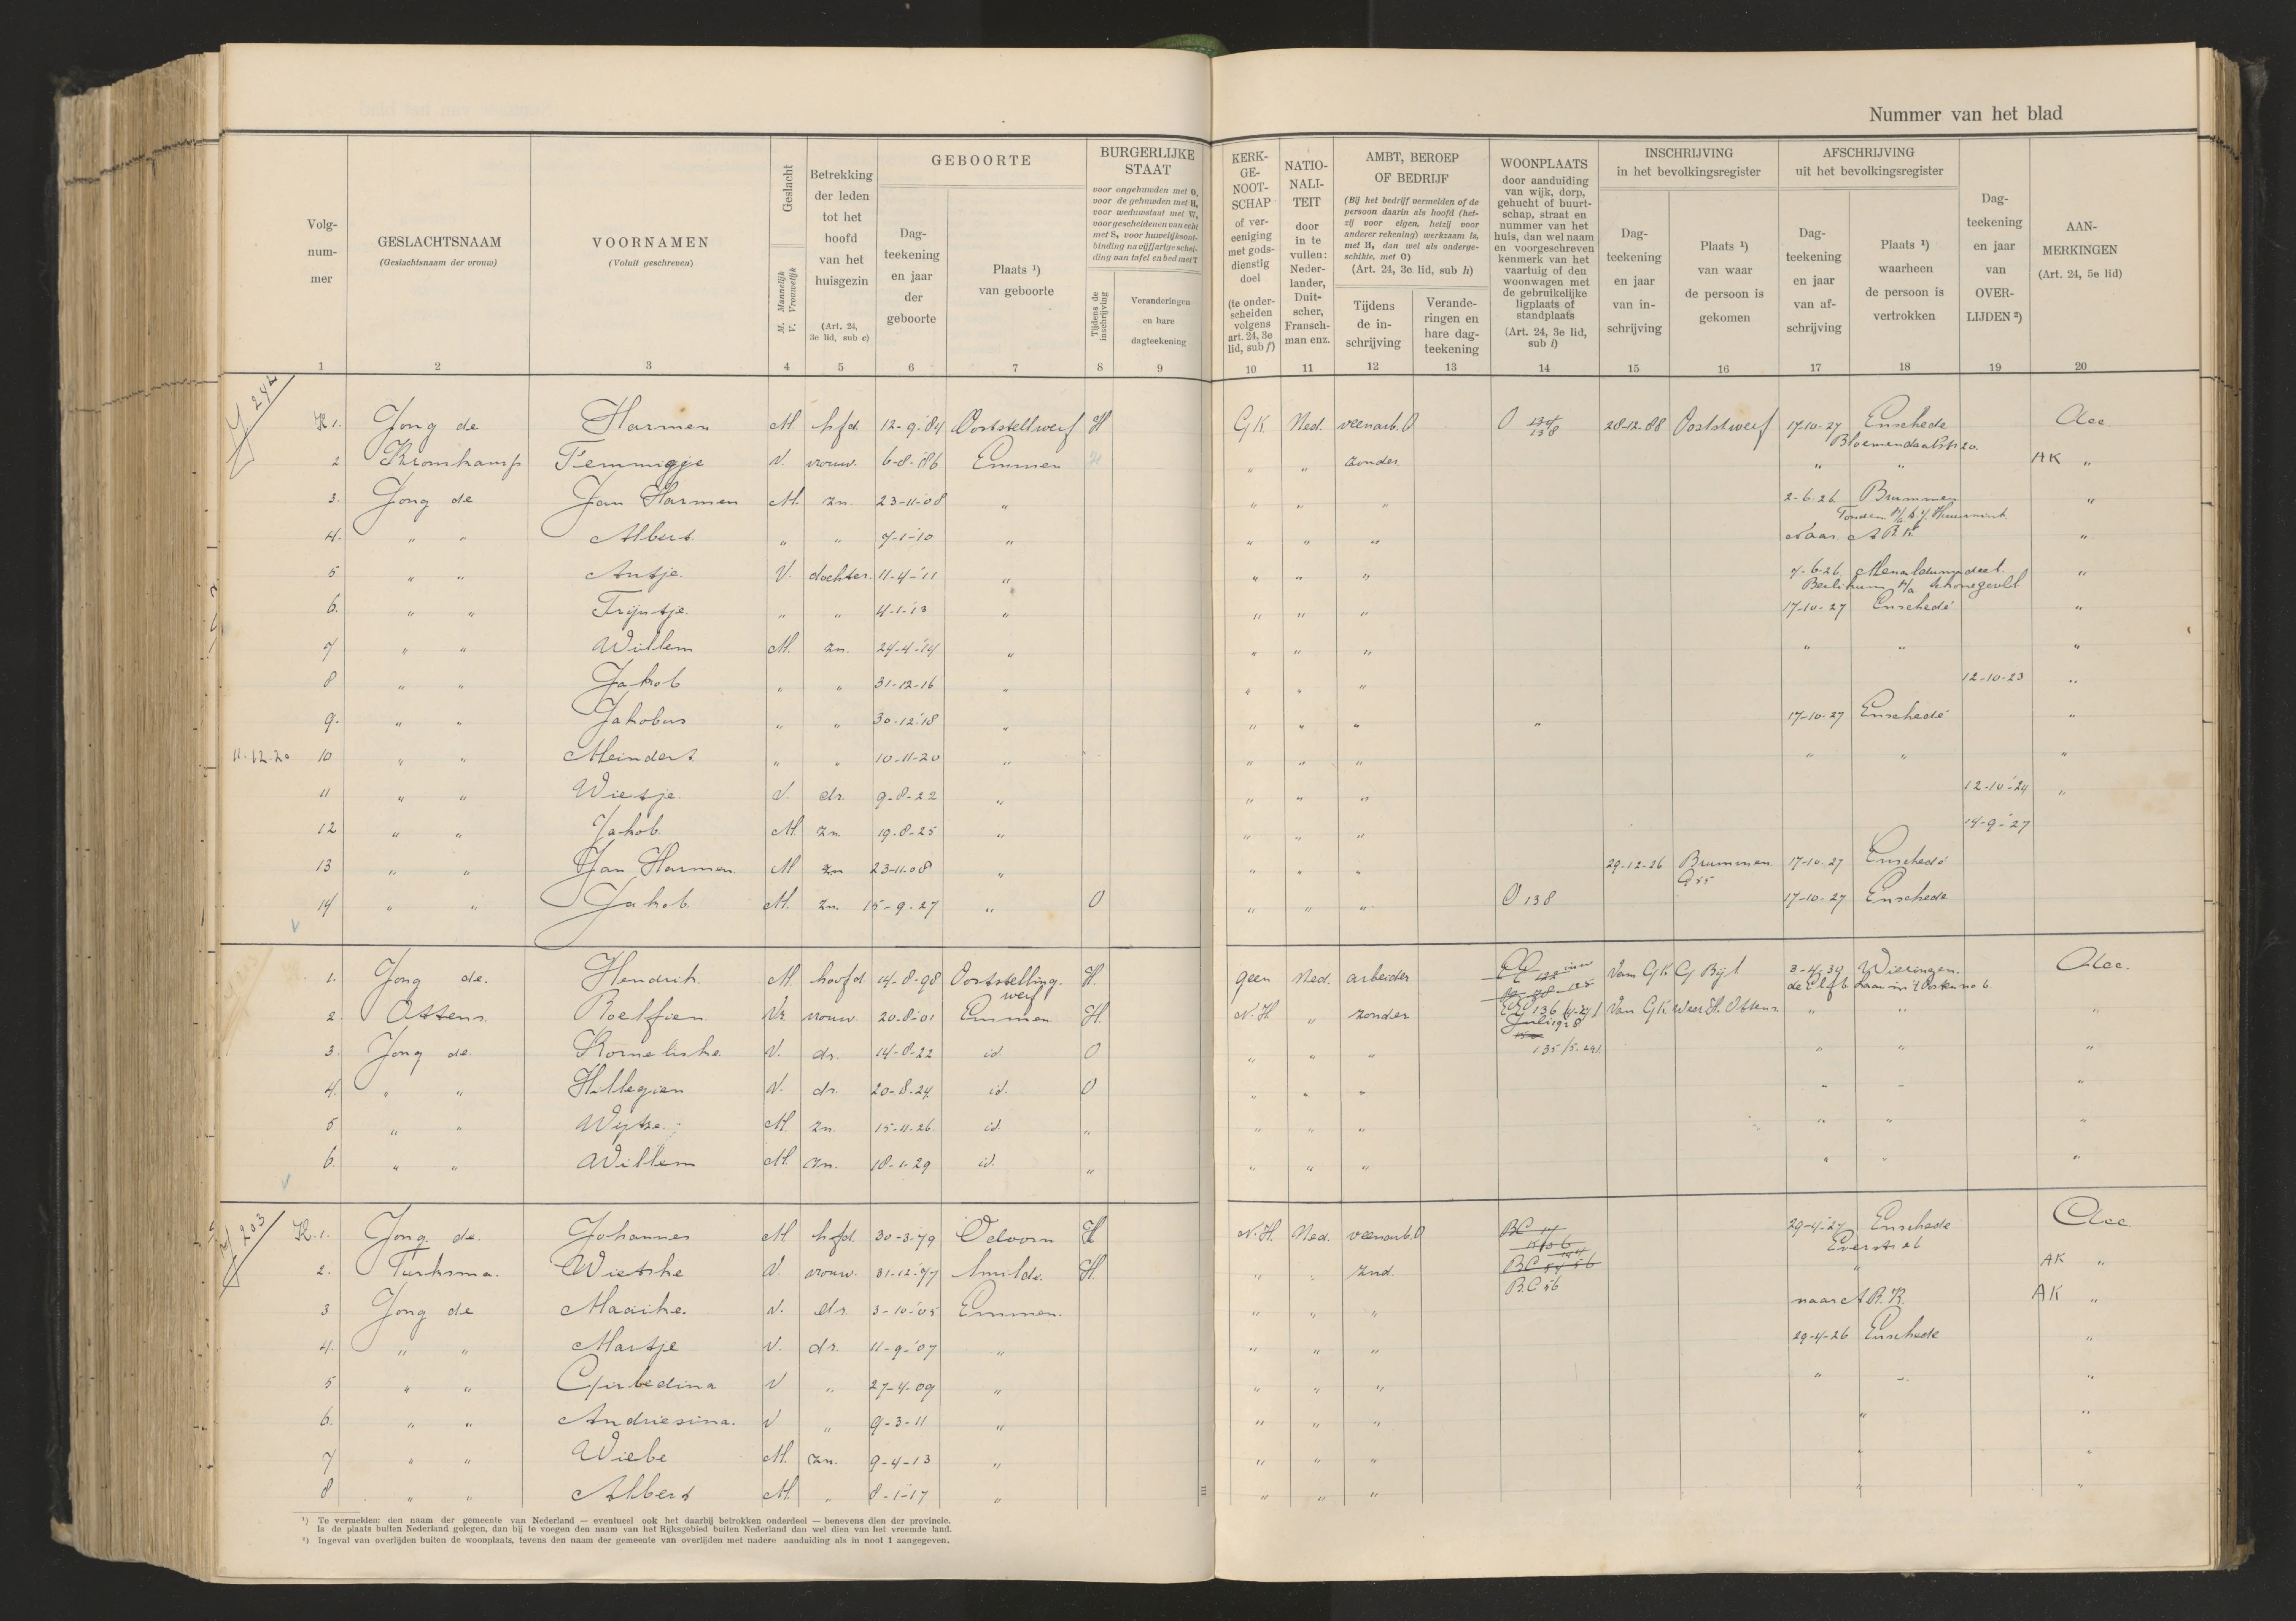 Nummer van het blad
Volg-
num-
mer
GESLACHTSNAAM
(Geslachtsnaam der vrouw)
VOORNAMEN
(Voluit geschreven)
Geslacht
M. Mannelijk
V. Vrouwelijk
Betrekking
der leden
tot het
hoofd
van het
huisgezin
(Art. 24,
3e lid, sub c)
GEBOORTE
Dag-
teekening
en jaar
der
geboorte
Plaats ¹)
van geboorte
BURGERLIJKE
STAAT
voor ongehuwden met O,
voor de gehuwden met H,
voor weduwstaat met W,
voor gescheidenen van echt
met S, voor huwelijksont-
binding na vijfjarige schei-
ding van tafel en bed met T
Tijdens de
inschrijving
Veranderingen
en hare
dagteekening
KERK-
GE-
NOOT-
SCHAP
of ver-
eeniging
met gods-
dienstig
doel
(te onder-
scheiden
volgens
art. 24, 3e
lid, sub f)
NATIO-
NALI-
TEIT
door
in te
vullen:
Neder-
lander,
Duit-
scher,
Fransch-
man enz.
AMBT, BEROEP
OF BEDRIJF
(Bij het bedrijf vermelden of de
persoon daarin als hoofd (het-
zij voor eigen, hetzij voor
anderer rekening) werkzaam is,
met H, dan wel als onderge-
schikte, met O)
(Art. 24, 3e lid, sub h)
Tijdens
de in-
schrijving
Verande-
ringen en
hare dag-
teekening
WOONPLAATS
door aanduiding
van wijk, dorp,
gehucht of buurt-
schap, straat en
nummer van het
huis, dan wel naam
en voorgeschreven
kenmerk van het
vaartuig of den
woonwagen met
de gebruikelijke
ligplaats of
standplaats
(Art. 24, 3e lid,
sub i)
INSCHRIJVING
in het bevolkingsregister
Dag-
teekening
en jaar
van in-
schrijving
Plaats ¹)
van waar
de persoon is
gekomen
AFSCHRIJVING
uit het bevolkingsregister
Dag-
teekening
en jaar
van af-
schrijving
Plaats ¹)
waarheen
de persoon is
vertrokken
Dag-
teekening
en jaar
van
OVER-
LIJDEN ²)
AAN-
MERKINGEN
(Art. 24, 5e lid)
1 2 3 4 5 6 7 8 9 10 11 12 13 14 15 16 17 18 19 20
K 1. Jong de Harmen M. hfd. 12-9-'84 Ooststellwerf H GK. Ned. veenarb. O O 138 28-12-88 Ooststwerf 17-10-27 Enschede Acc
Bloemendaalstr 20.
2 Kromkamp Femmigje V. vrouw. 6-8-'86 Emmen H " " zonder " " AK "
3. Jong de Jan Harmen M. zn. 23-11-08 " " " " 2-6-26 Brummen "
Tonden
4. " " Albert " " 7-1-10 " " " " Naar A.R.K. "
5 " " Antje. V. dochter. 11-4-'11 " " " " 7-6-26. Menaldumadeel. "
Berlikum p/a
6. " " Trijntje. " " 4-1-'13 " " " " 17-10-27 Enschedé "
7 " " Willem M. zn. 24-4-'14 " " " " " " "
8 " " Jakob " " 31-12-16 " " " " 12-10-23 "
9. " " Jakobus " " 30-12-'18 " " " " " 17-10-27 Enschedé "
11-12-20 10 " " Meindert " " 10-11-20 " " " " " " "
11 " " Wietje. V. dr. 9-8-22 " " " " 12-10-'24 "
12 " " Jakob. M. zn. 19-8-25 " " " " 14-9-'27
13 " " Jan Harmen. M zn 23-11-08 " " " " 29-12-26 Brummen. 17-10-27 Enschedé
G 55
14 " " Jakob. M. zn. 15-9-27 " O " " " O 138 17-10-27 Enschede
1. Jong de. Hendrik. M. hoofd 14-8-98 Ooststelling- H. geen Ned. arbeider Van GK G Bijl 3-4-34 Wieringen. Acc.
werf
Laan in 't Oosten no 6
2. Ottens. Roelfien Vr. vrouw. 20-8-01 Emmen H. N.H " zonder 136 Van GK " " "
Juli 1928
3. Jong de. Korneliske. V. dr. 14-8-22 id. O " " " 135 " " "
4. " " Hillegien V. dr. 20-8-24 id. O " " " " " "
5 " " Wijtze. M. zn. 15-11-26. id. " " " " " " "
6. " " Willem M. zn. 18-1-29 id. " " " " " " "
203
K. 1. Jong. de. Johannes M hfd. 30-3-79 Odoorn H N.H. Ned. veenarb. O BC 29-4-'27 Enschede Acc.
2. Turksma. Wietske V. vrouw. 31-12-'77 Smilde. H. " " znd. BC 54 56 " AK "
BC 56
3 Jong de Maaike. V. dr. 3-10-'05 Emmen. " " " naar A.R.K. AK "
4. " " Martje V. dr. 11-9-'07 " " " " 29-4-26 Enschede "
5 " " Girbedina V " 27-4-09 " " " " " " "
6. " " Andriesina. V " 9-3-11 " " " " " "
7 " " Wiebe M. zn. 9-4-13 " " " " " "
8 " " Albert M " 8-1-17 " " " " " "
¹) Te vermelden: den naam der gemeente van Nederland — eventueel ook het daarbij betrokken onderdeel — benevens dien der provincie.
Is de plaats buiten Nederland gelegen, dan bij te voegen den naam van het Rijksgebied buiten Nederland dan wel dien van het vreemde land.
²) Ingeval van overlijden buiten de woonplaats, tevens den naam der gemeente van overlijden met nadere aanduiding als in noot 1 aangegeven.